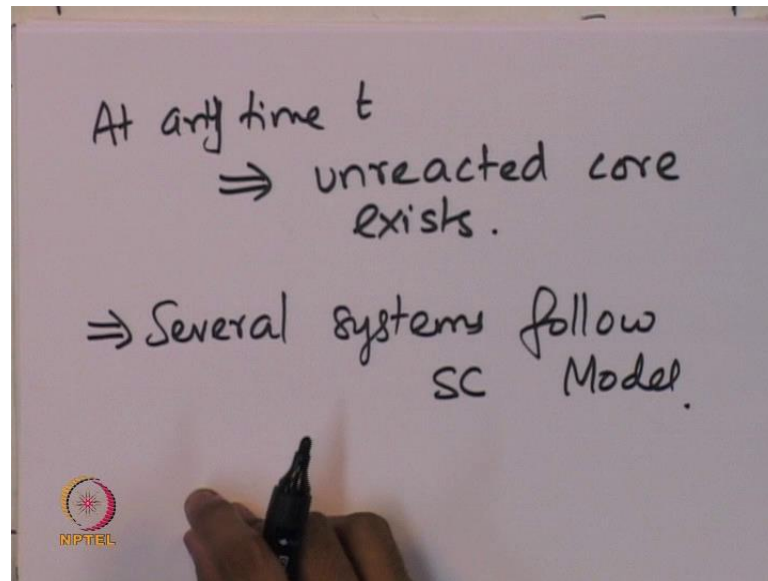 At any time t
⇒ unreacted core
exists.
⇒ Several systems follow
SC Model.
NPTEL